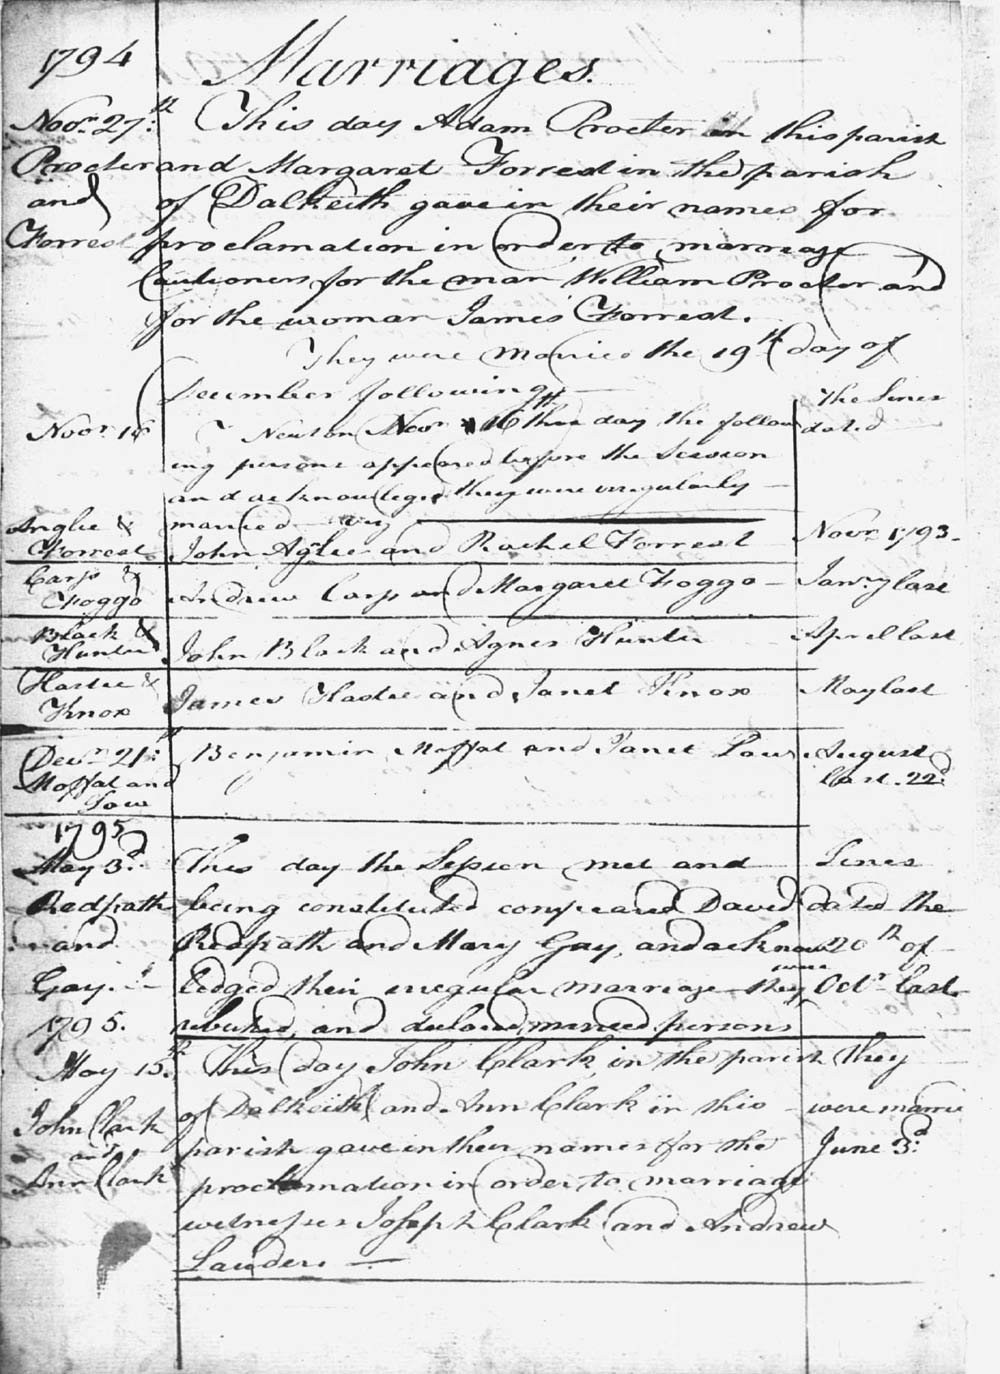 1794 Marriages.
Novr. 27th. This day Adam Procter in this parish
Procter and Margaret Forrest in the parish
and of Dalkeith gave in their names for
Forrest proclamation in order to marriage
Cautioners for the man William Procter and
for the woman James Forrest.
They were married the 19th day of
December following
The Lines
Novr. 16 Newton Novr 16th this day the follow dated
ing persons appeared before the Session
and acknowledged they were irregularly
married viz
Anglie & Forrest John Aglie and Rachel Forrest Novr 1793.
Carp & Foggo Andrew Carp and Margaret Foggo Janry last
Black & Hunter John Black and Agnes Hunter Aprel last
Hastie & Knox James Hastie and Janet Knox May last
Decr. 21st Benjamin Moffat and Janet Law August
Moffat and Law last. 22d
1795
May 3d. This day the Session met and Lines
Redpath being constituted compeared David dated the
and Redpath and Mary Gay, and acknow 20th of
Gay. ledged their irregular marriage they were Octr last
1795. rebuked, and declared married persons
May 15th. This day John Clark, in the parish they
John Clark of Dalkeith and Ann Clark in this were marrie
and parish gave in their names for the June 3d.
Ann Clark proclamation in order to marriage
witnesses Joseph Clark and Andrew
Lauder.